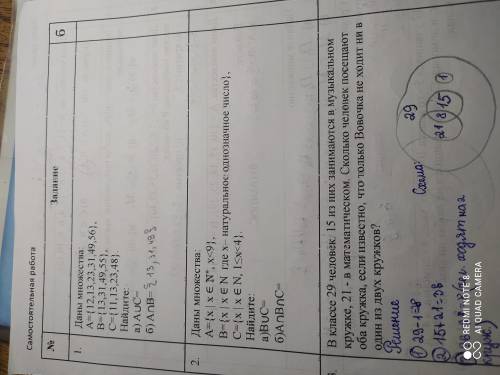 Самостоятельная работа
№ Задание б
1. Даны множества:
A={12,13,23,31,49,56},
B={13,31,49,55},
C={11,13,23,48}.
Найдите:
а) A∪C=
б) A∩B= {13,31,49}
2. Даны множества:
A={x | x ∈ N*, x<9},
B={x | x ∈ N, где x– натуральное однозначное число},
C={x | x ∈ N, 1≤x<4}.
Найдите:
а)B∪C=
б)A∩B∩C=
3. В классе 29 человек. 15 из них занимаются в музыкальном
кружке, 21 - в математическом. Сколько человек посещают
оба кружка, если известно, что только Вовочка не ходит ни в
один из двух кружков?
Решение Схема: 29
① 29-1=28 21 8 15 1
② 15+21=36
REDMI NOTE 8
AI QUAD CAMERA